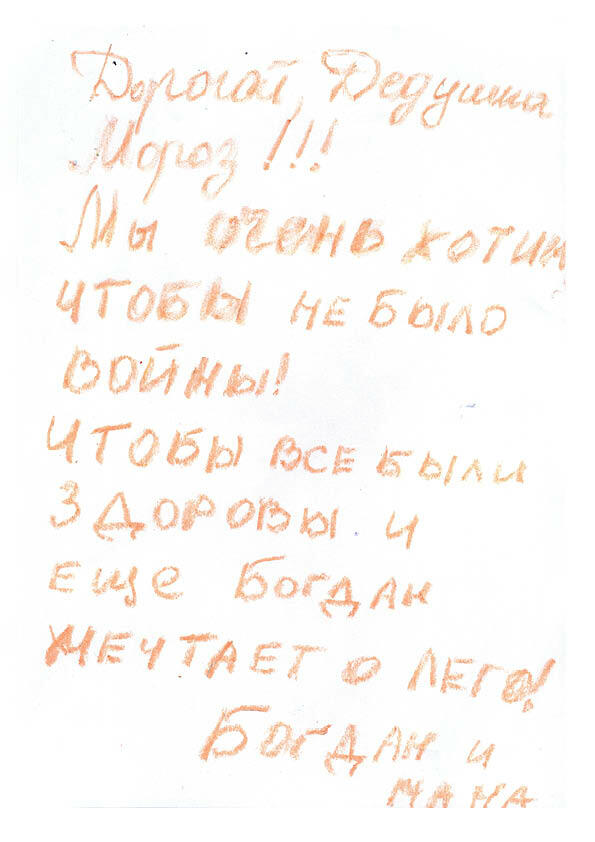 Дорогой, Дедушка
Мороз!!!
Мы очень хотим
чтобы не было
войны!
Чтобы все были
здоровы и
еще Богдан
мечтает о лего!
Богдан и
мама